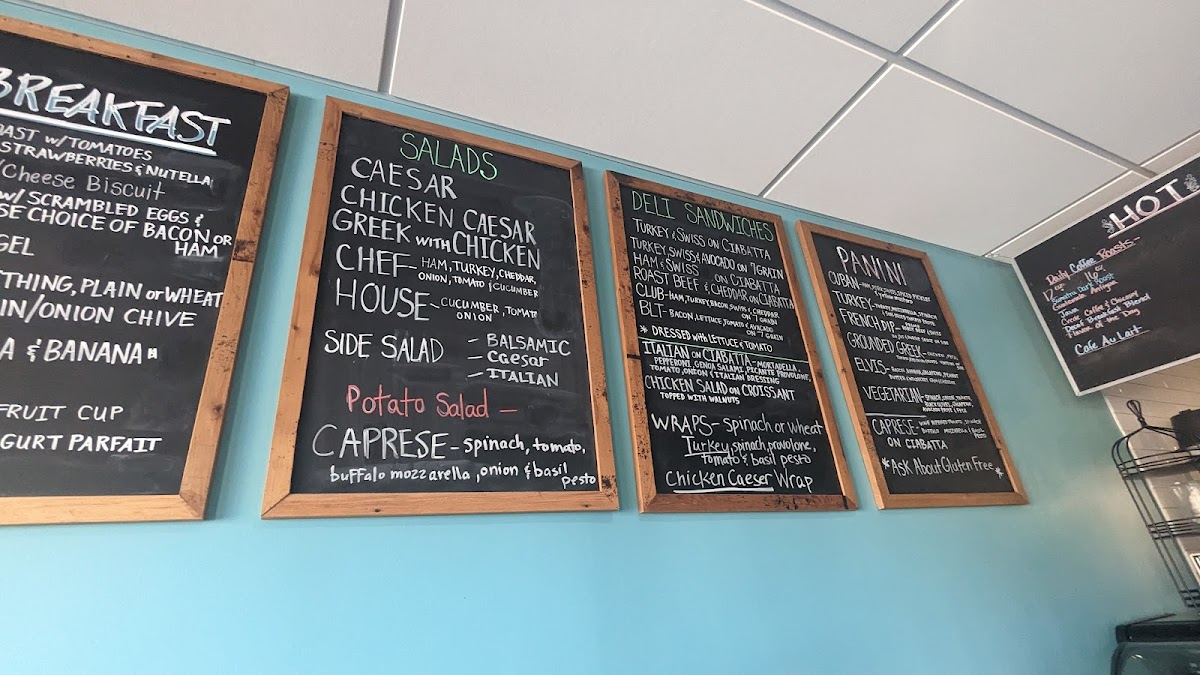 BREAKFAST
w/TOMATOES
STRAWBERRIES & NUTELLA
/Cheese Biscuit
w/ SCRAMBLED EGGS &
CHOICE OF BACON OR
HAM
PLAIN or WHEAT
IN/ONION CHIVE
& BANANA
FRUIT CUP
PARFAIT
SALADS
CAESAR
CHICKEN CAESAR
GREEK with CHICKEN
CHEF- HAM, TURKEY, CHEDDAR,
ONION, TOMATO & CUCUMBER
HOUSE- CUCUMBER, TOMATO
ONION
SIDE SALAD - BALSAMIC
- Caesar
- ITALIAN
Potato Salad -
CAPRESE - spinach, tomato,
buffalo mozzarella, onion & basil
pesto
DELI SANDWICHES
TURKEY & SWISS ON CIABATTA
TURKEY, SWISS & AVOCADO ON 7 GRAIN
HAM & SWISS ON CIABATTA
ROAST BEEF & CHEDDAR ON CIABATTA
CLUB-HAM, TURKEY, BACON, SWISS & CHEDDAR
ON 7 GRAIN
BLT- BACON, LETTUCE, TOMATO & AVOCADO
ON 7 GRAIN
* DRESSED with LETTUCE & TOMATO
ITALIAN ON CIABATTA- MORTADELLA,
PEPPERONI, GENOA SALAMI, PICANTE PROVOLONE,
TOMATO, ONION & ITALIAN DRESSING
CHICKEN SALAD ON CROISSANT
TOPPED WITH WALNUTS
WRAPS- Spinach or wheat
Turkey, spinach, provolone,
tomato & basil pesto
Chicken Caeser Wrap
PANINI
CUBAN-
TURKEY-
FRENCH DIP-
GROUNDED GREEK-
ELVIS-
VEGETARIAN-
CAPRESE-
BUFFALO MOZZARELLA &
ON CIABATTA
*Ask About Gluten Free*
HOT
Daily Coffee Roasts-
12 oz 16 oz
Sumatra Dark Roast
Guatemala Antigua
Java
Creole Coffee & Chicory
Decaf Breakfast Blend
Flavor of the Day
Cafe Au Lait